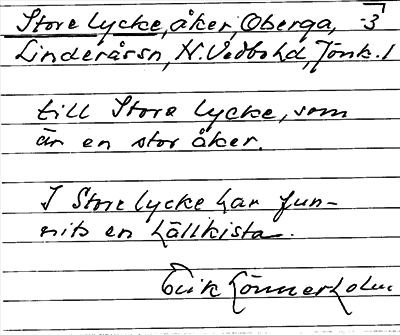 Store lycke, åker, Oberga, -3
Linderåssn, N. Vedbo hd, Jönk. l
till Store lycke, som
är en stor åker.
I Store lycke har fun-
nits en hällkista.
Erik Lönnerholm